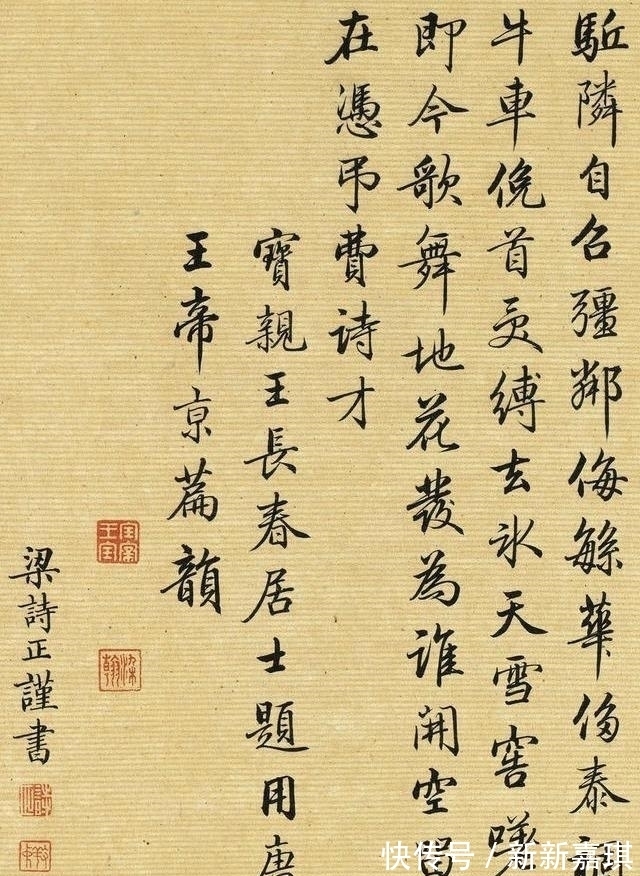 駈隣自召疆鄰侮緐華侈泰
牛車俛首受縛去氷天雪窖
即今歌舞地花發為誰開空留
在憑吊費詩才
寶親王長春居士題用唐
王帝京篇韻
寶親王寶
梁詩正謹書
快传号 / 新新嘉琪